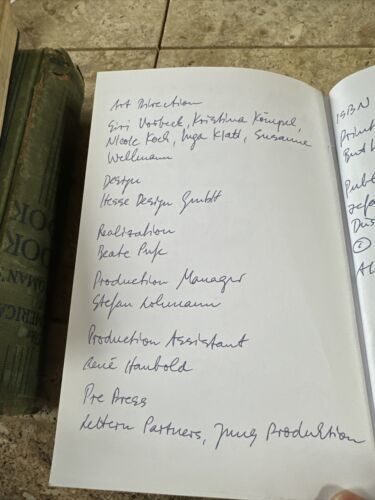 Art Direction
Siri Vorbeck, Kristina Kömpel,
Nicole Koch, Inga Klatt, Susanne
Wellmann
Design
Hesse Design GmbH
Realization
Beate
Production Manager
Stefan Lohmann
Production Assistant
René Haubold
Pre Press
Lettern Partners, Jung Produktion
ISBN